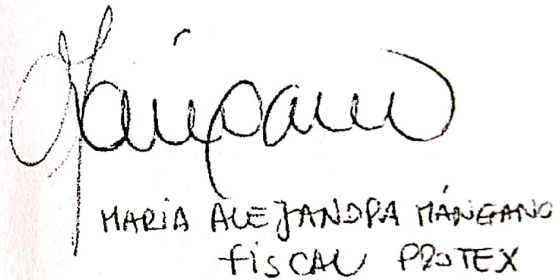 Mángano
MARIA ALEJANDRA MÁNGANO
FISCAL PROTEX